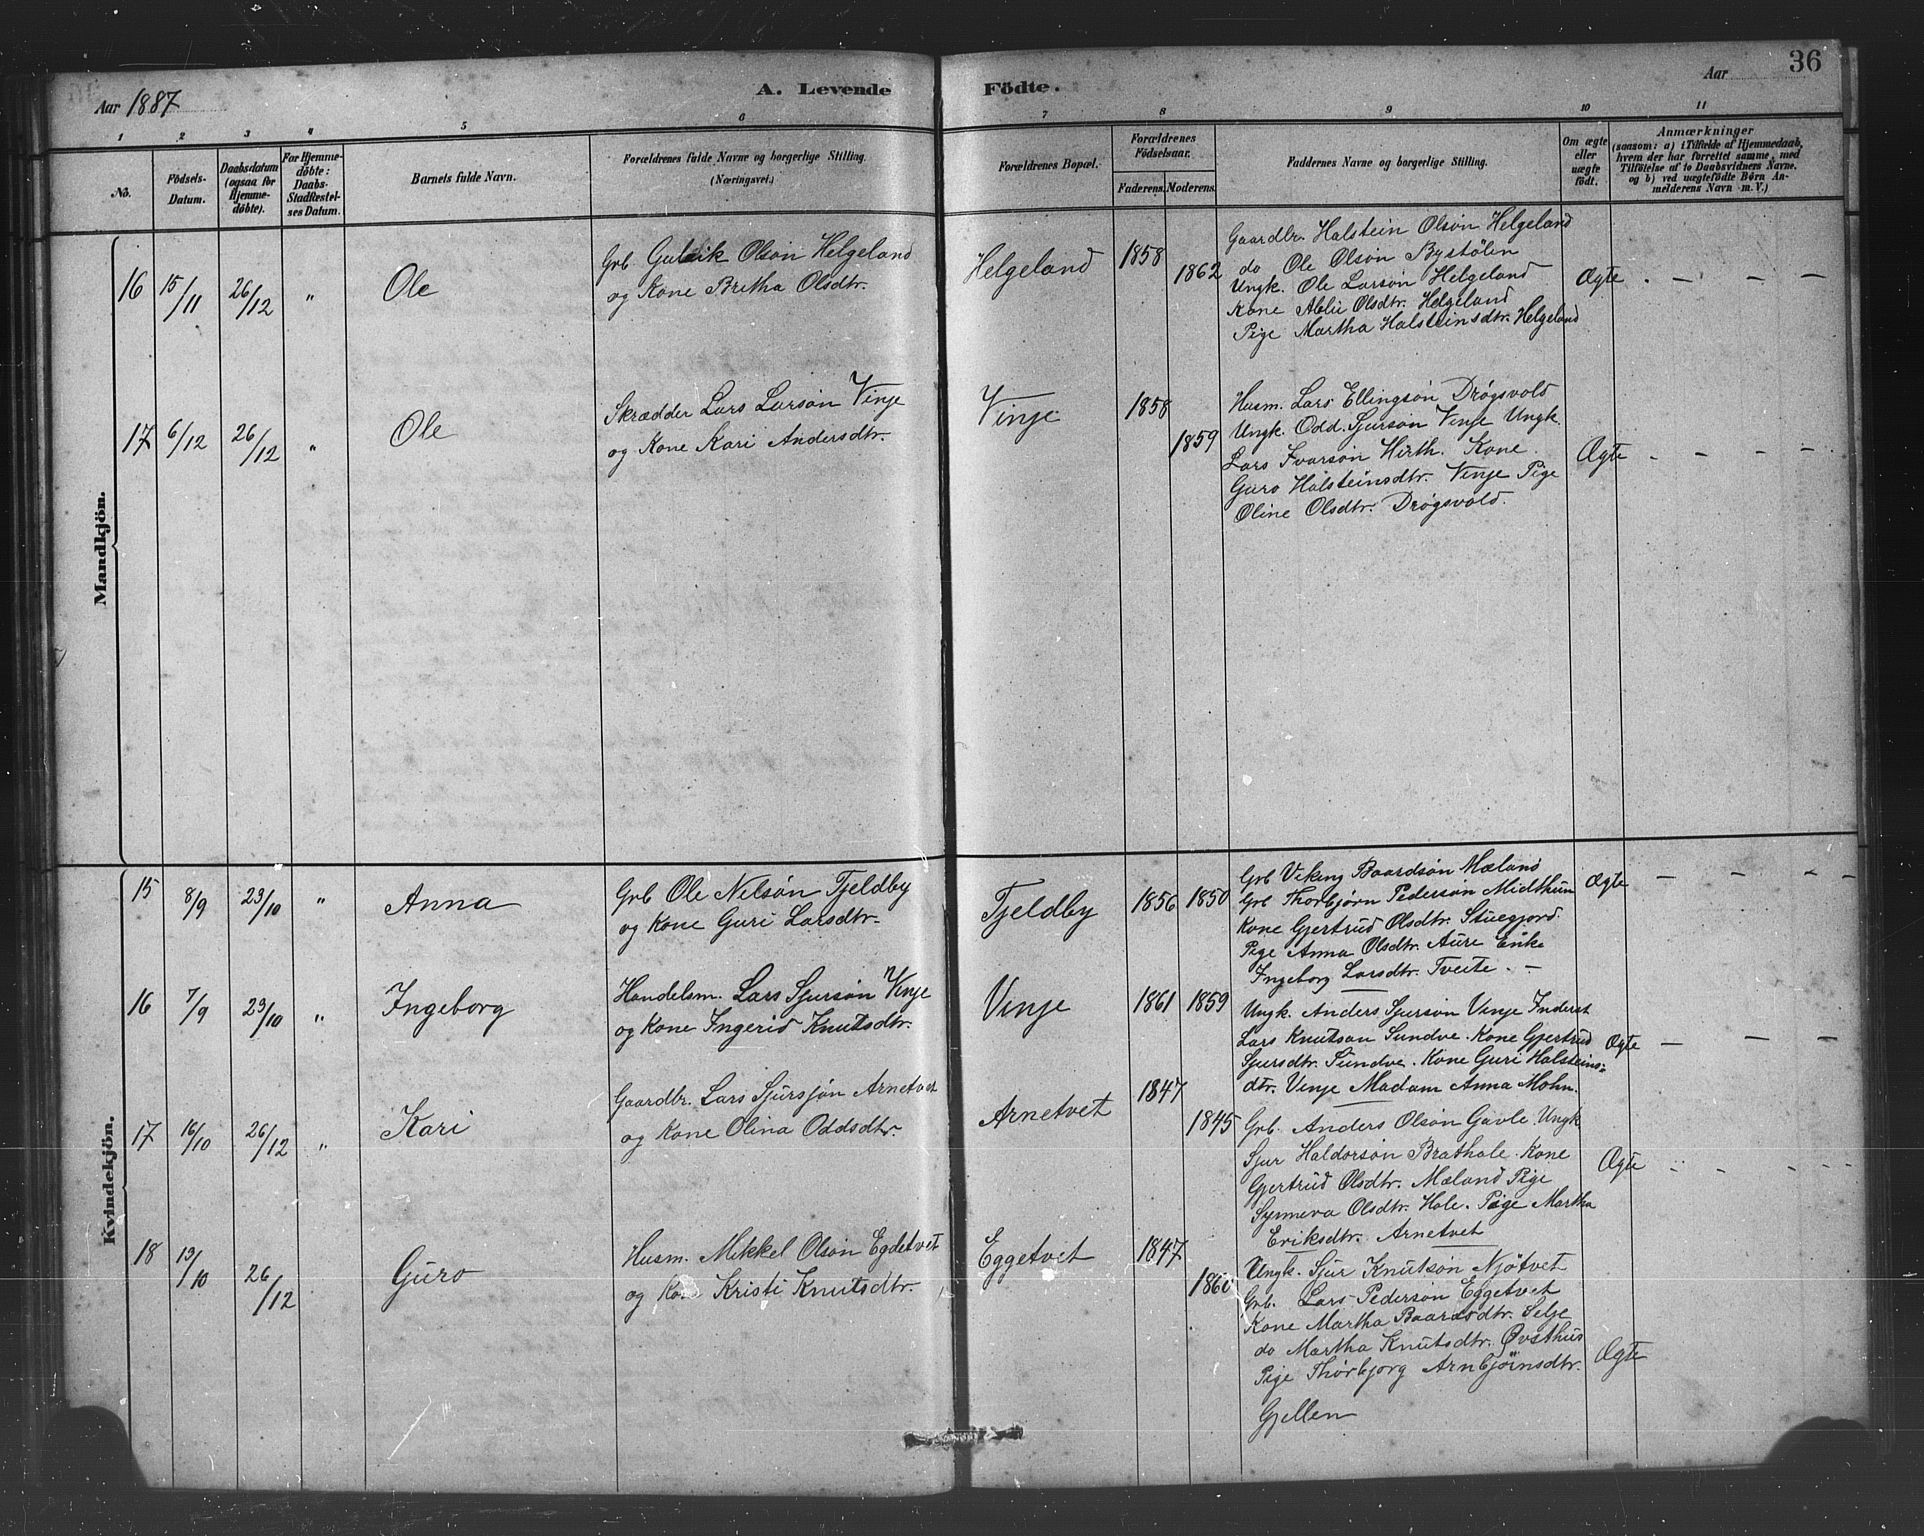 Aar 1887
A. Levende Födte.
Aar
36
1 2 3 4 5 6 7 8 9 10 11
No.
Födsels-
Datum.
Daabsdatum
(ogsaa for
Hjemme-
döbte).
For Hjemme-
döbte:
Daabs-
Stadfæstel-
ses Datum.
Barnets fulde Navn.
Forældrenes fulde Navne og borgerlige Stilling.
(Næringsvei.)
Forældrenes Bopæl.
Forældrenes
Födselsaar.
Faderens. Moderens.
Faddernes Navne og borgerlige Stilling.
Om ægte
eller
uægte
födt.
Anmærkninger
(saasom: a) i Tilfælde af Hjemmedaab,
hvem der har forrettet samme, med
Tilföielse af to Daabsvidners Navne,
og b) ved uægtefödte Börn An-
melderens Navn m. V.)
Mandkjön.
16 15/11 26/12 " Ole
Grb. Gulleik Olson Helgeland
og Kone Britha Olsdtr.
Helgeland 1858 1862
Gaardbr. Halstein Olson Helgeland
do Ole Olson Bystölen
Ungk. Ole Larson Helgeland
Kone Olsdtr. Helgeland
Pige Martha Halsteinsdtr. Helgeland
Ægte . — — —
17 6/12 26/12 " Ole
Skrædder Lars Larson Vinje
og Kone Kari Andersdtr.
Vinje 1858 1859
Husm. Lars Ellingson Drøgsvold
Ungk. Odd. Sjurson Vinje Ungk.
Lars Ivarson Hirth. Kone
Guro Halsteinsdtr. Vinje Pige
Oline Olsdtr. Drøgsvold.
Ægte - - - -
Kvindekjön.
15 8/9 23/10 " Anna
Grb Ole Nelson Tjeldby
og Kone Guri Larsdtr.
Tjeldby 1856 1850
Grb Viking Baardson Mæland
Grb Thorbjørn Pederson Midthun
Kone Gjertrud Olsdtr. Stuegjord.
Pige Anna Olsdtr. Aure Enke
Ingeborg Larsdtr. Tveite. —
Ægte — — — —
16 7/9 23/10 " Ingeborg
Handelsm. Lars Sjurson Vinje
og Kone Ingerid Knutsdtr.
Vinje 1861 1859
Ungk. Anders Sjurson Vinje Inderst
Lars Knutson Sundve. Kone Gjertrud
Sjursdtr. Sundve. Kone Guri Halsteins-
dtr. Vinje Madam Anna Mohn.
Ægte — — — —
17 16/10 26/12 " Kari
Gaardbr. Lars Sjursjøn Arnetvet
og Kone Olina Oddsdtr.
Arnetvet 1847 1845
Grb. Anders Olson Gavle. Ungk
Sjur Haldorson Brathole. Kone
Gjertrud Olsdtr. Mæland Pige
Synneva Olsdtr. Hole. Pige Martha
Eriksdtr. Arnetvet
Ægte - - - -
18 13/10 26/12 Guro
Husm. Mikkel Olson Egdetvet
og Kone Kristi Knutsdtr.
Eggetvet 1847 1860
Ungk. Sjur Knutson Njötvet
Grb. Lars Pederson Eggetvet
Kone Martha Baardsdtr. Selje
do Martha Knutsdtr. Øvsthus
Pige Thorbjorg Arnbjörnsdtr.
Gjellen
Ægte